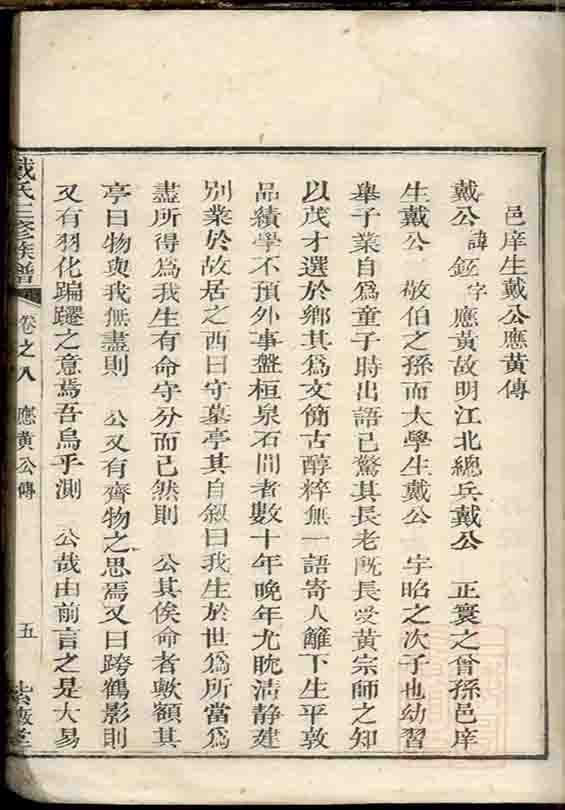 邑庠生戴公應黃傳
戴公諱鈺字應黃故明江北總兵戴公 正寰之曾孫邑庠
生戴公 敬伯之孫而太學生戴公 宇昭之次子也幼習
舉子業自爲童子時出語已驚其長老旣長受黃宗師之知
以茂才選於鄉其爲文簡古醇粹無一語寄人籬下生平敦
品績學不預外事盤桓泉石間者數十年晚年尤眈清静建
別業於故居之西曰守墓亭其自敘曰我生於世爲所當爲
盡所得爲我生有命守分而已然則 公其俟命者歟額其
亭曰物與我無盡則 公又有齊物之思焉又曰跨鶴影則
又有羽化蹁躚之意焉吾烏乎測 公哉由前言之是大易
戴氏三修族譜 卷之八 應黃公傳 五